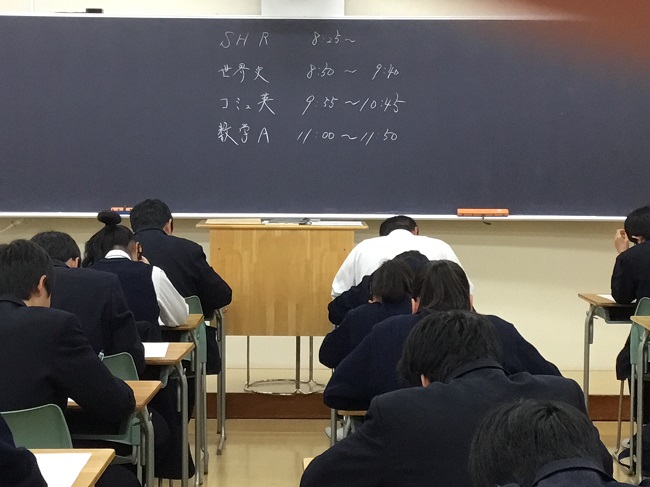 SHR 8:25~
世界史 8:50 ~ 9:40
コミュ英 9:55~10:45
数学A 11:00~11:50